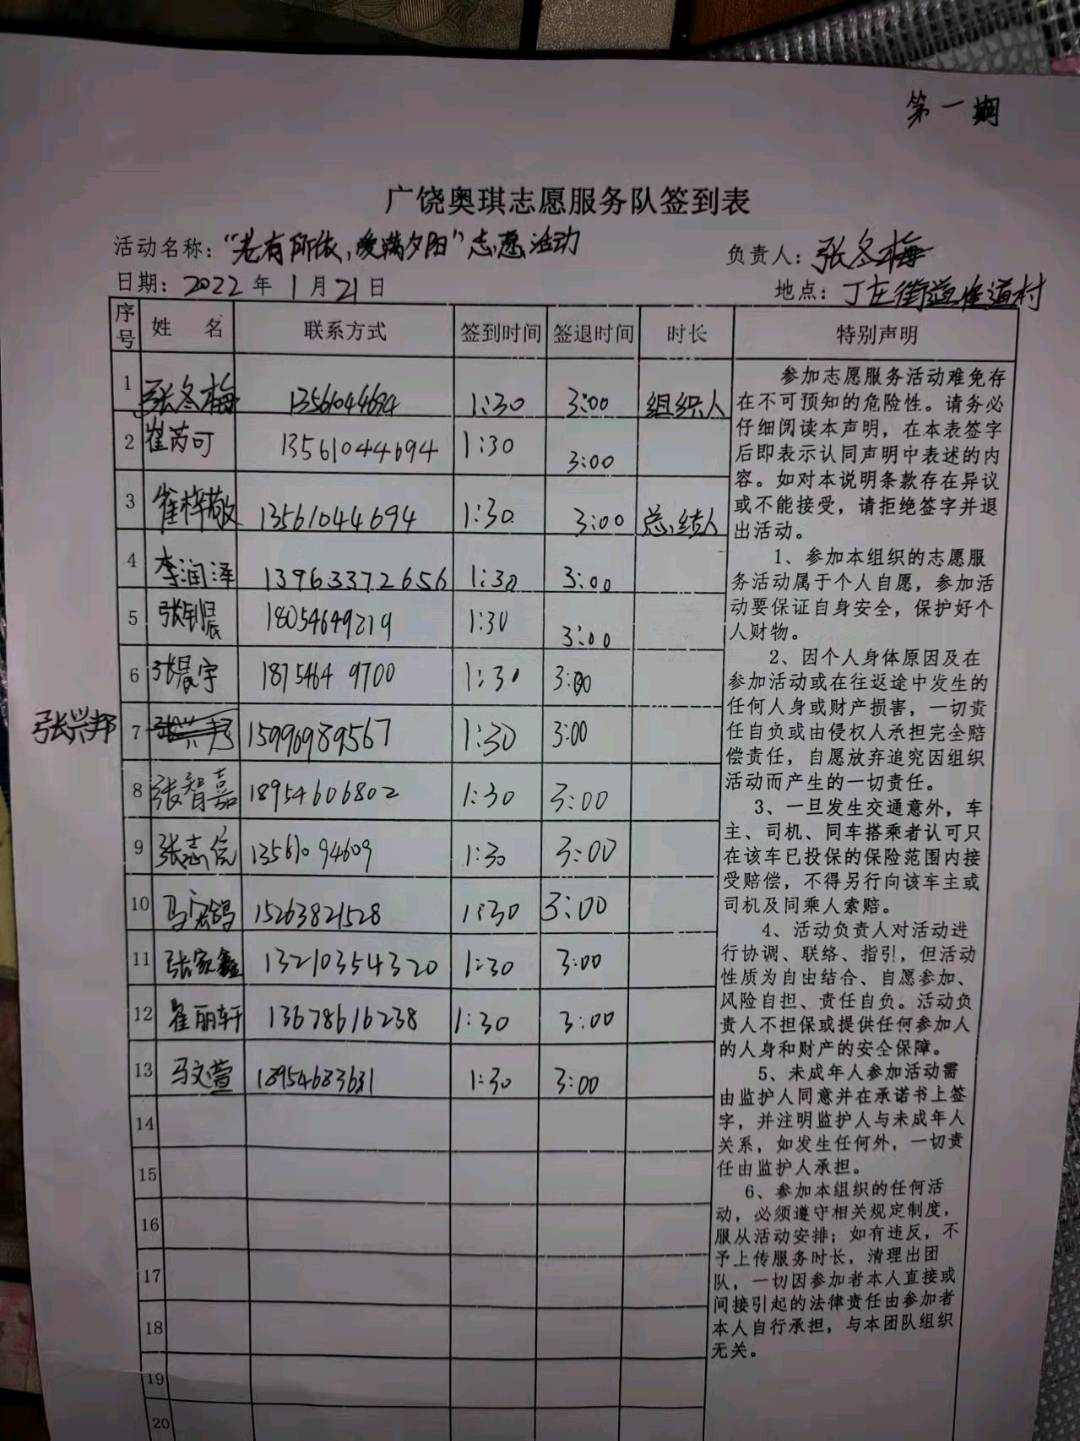 第一期
广饶奥琪志愿服务队签到表
活动名称：“老有所依，爱满夕阳”志愿活动 负责人：张冬梅
日期：2022年1月21日 地点：丁庄街道崔道村
序号 姓名 联系方式 签到时间 签退时间 时长 特别声明
1 张冬梅 13561044694 1:30 3:00 组织人
2 崔芮可 13561044694 1:30 3:00
3 崔梓敬 13561044694 1:30 3:00 总结人
4 李润泽 13963372656 1:30 3:00
5 张钊晨 18054649219 1:30 3:00
6 张晨宇 18754649700 1:30 3:00
张兴邦 7 15996989567 1:30 3:00
8 张智嘉 18954606802 1:30 3:00
9 张志信 13561094609 1:30 3:00
10 马宏鸽 15263821528 1:30 3:00
11 张家鑫 13210354320 1:30 3:00
12 崔丽轩 13678616238 1:30 3:00
13 马文萱 18954683631 1:30 3:00
14
15
16
17
18
19
20
参加志愿服务活动难免存
在不可预知的危险性。请务必
仔细阅读本声明，在本表签字
后即表示认同声明中表述的内
容。如对本说明条款存在异议
或不能接受，请拒绝签字并退
出活动。
1、参加本组织的志愿服
务活动属于个人自愿，参加活
动要保证自身安全，保护好个
人财物。
2、因个人身体原因及在
参加活动或在往返途中发生的
任何人身或财产损害，一切责
任自负或由侵权人承担完全赔
偿责任，自愿放弃追究因组织
活动而产生的一切责任。
3、一旦发生交通意外，车
主、司机、同车搭乘者认可只
在该车已投保的保险范围内接
受赔偿，不得另行向该车主或
司机及同乘人索赔。
4、活动负责人对活动进
行协调、联络、指引，但活动
性质为自由结合、自愿参加、
风险自担、责任自负。活动负
责人不担保或提供任何参加人
的人身和财产的安全保障。
5、未成年人参加活动需
由监护人同意并在承诺书上签
字，并注明监护人与未成年人
关系，如发生任何外，一切责
任由监护人承担。
6、参加本组织的任何活
动，必须遵守相关规定制度，
服从活动安排；如有违反，不
予上传服务时长，清理出团
队，一切因参加者本人直接或
间接引起的法律责任由参加者
本人自行承担，与本团队组织
无关。